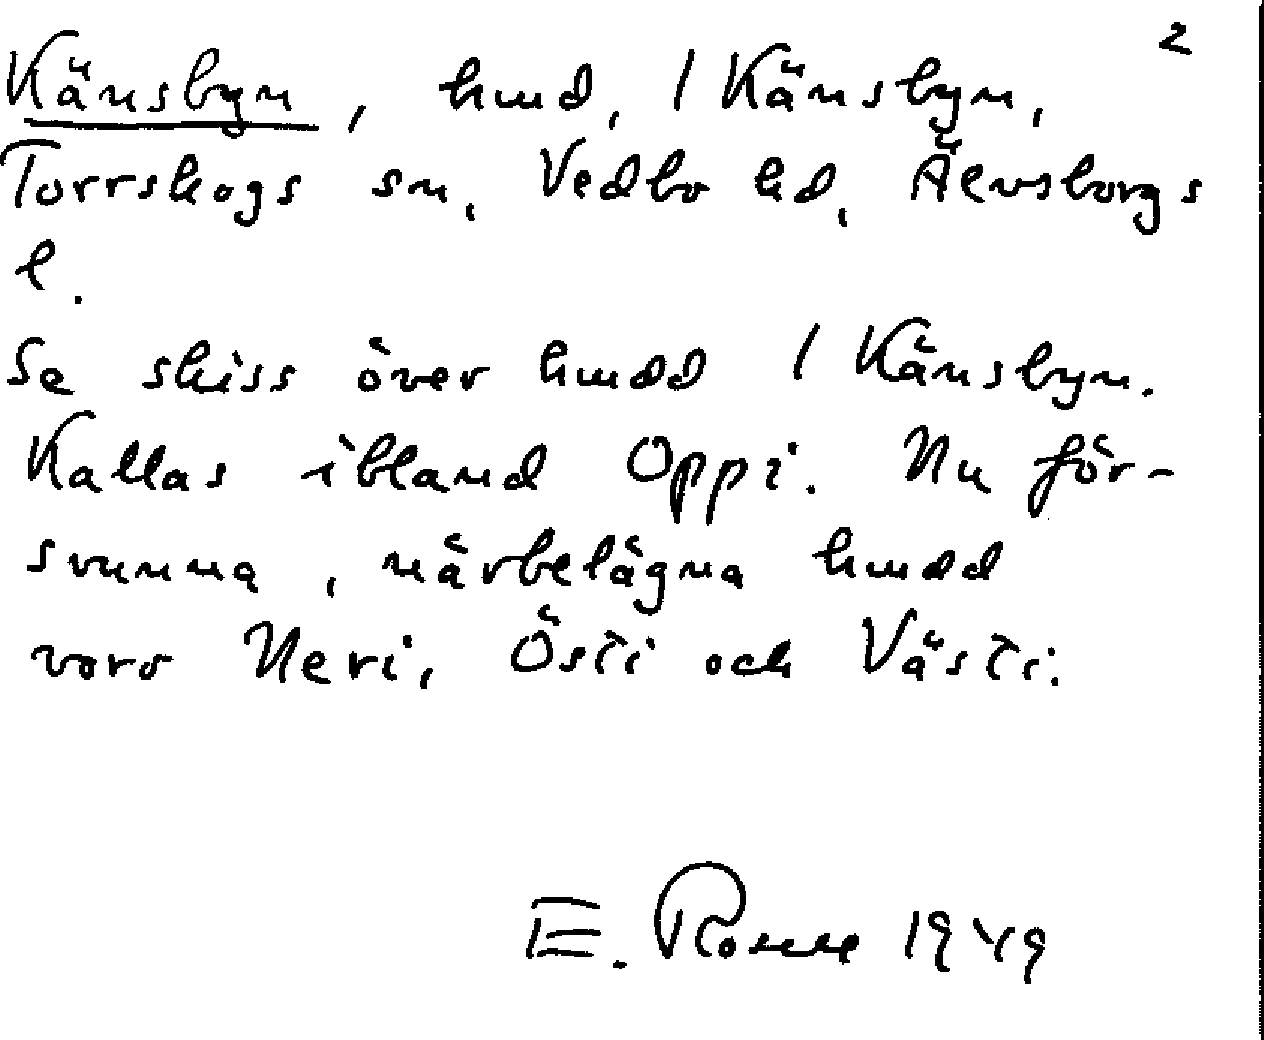 2
Känsbyn, hmd, 1 Känsbyn,
Torrskogs sn, Vedbo hd, Älvsborgs
l.
Se skiss över hmdd 1 Känsbyn.
Kallas ibland Oppi. Nu för-
svunna, närbelägna hmdd
voro Neri, Östi och Västi.
E. 1949